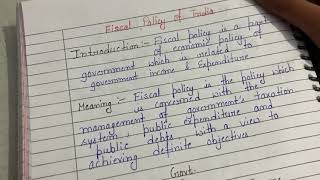 Fiscal Policy of India
Introduction :- Fiscal policy is a part
of economic policy of
government which is related to
government income & Expenditure
Meaning :- Fiscal policy is the policy which
is concerned with the
management of government's taxation
system, public expenditure and
public debts with a view to
achieving definite objectives.
Govt.